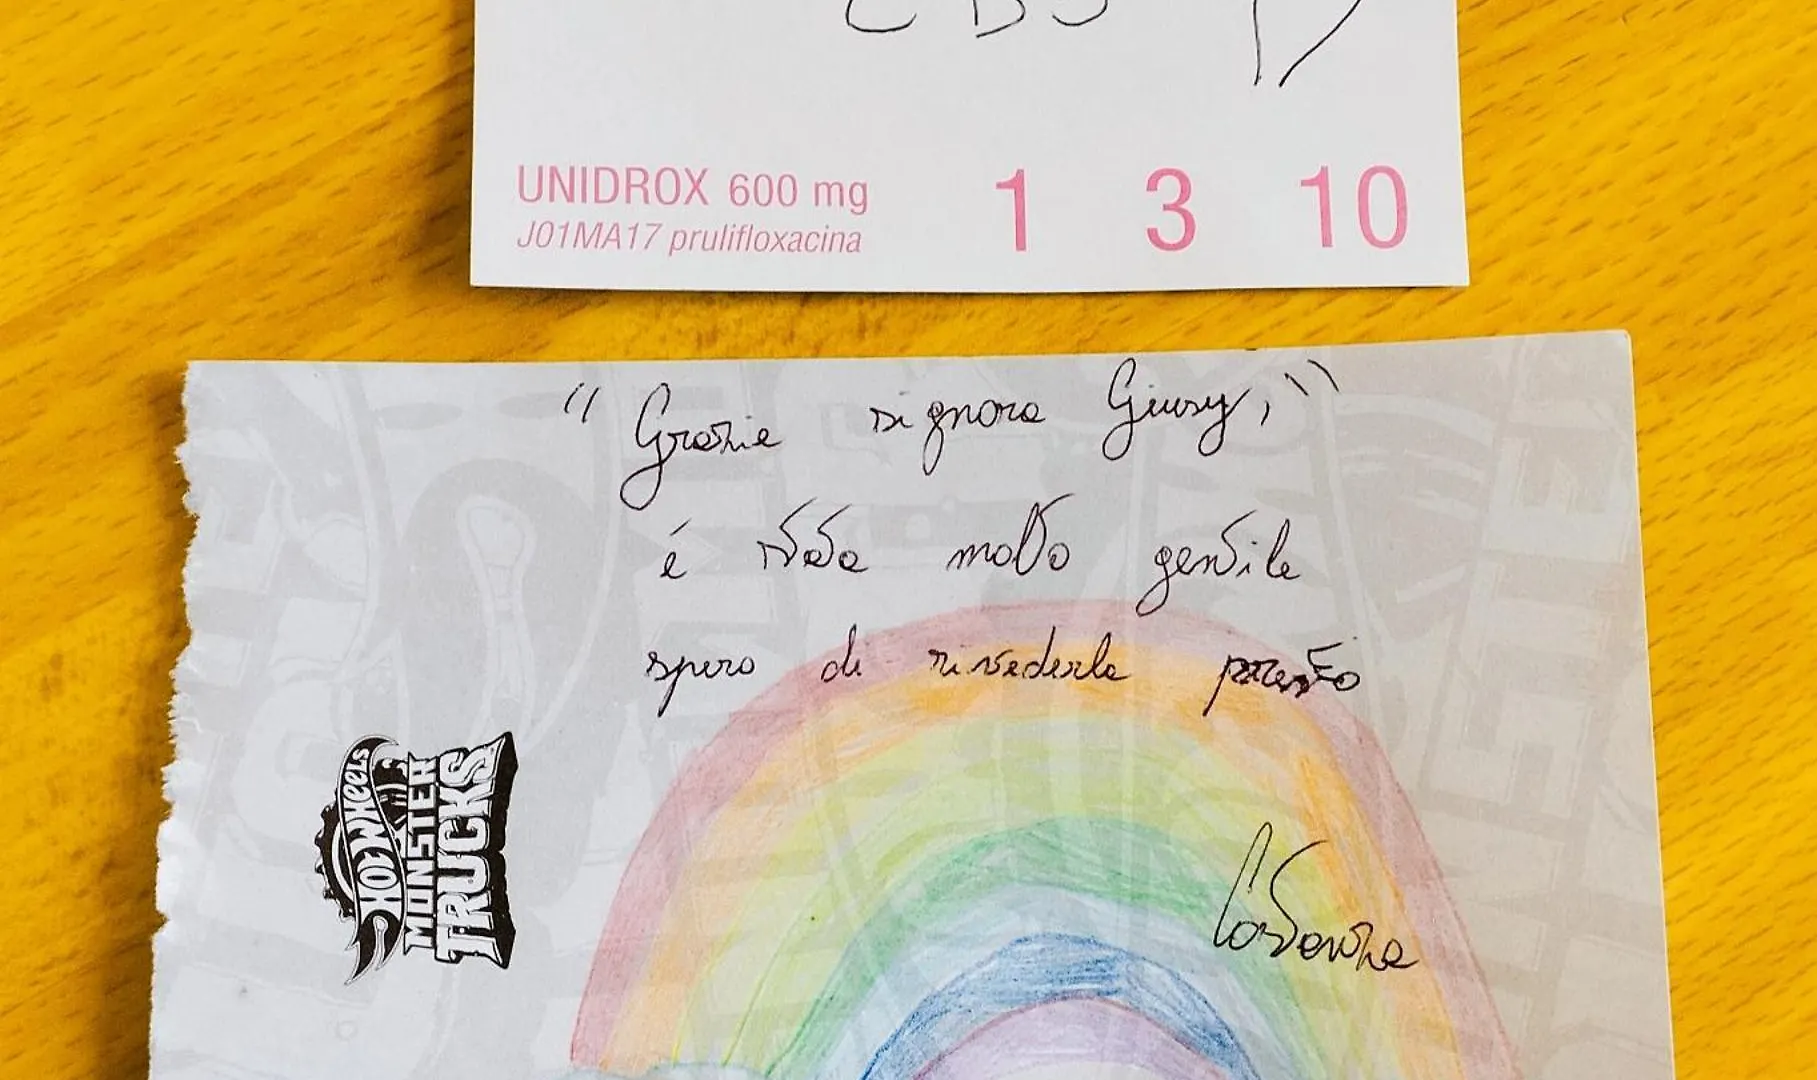 UNIDROX 600 mg 1 3 10
J01MA17 prulifloxacina
“Grazie signora Giusy,”
é stata molto gentile
spero di rivederla presto
HOT WHEELS
MONSTER
TRUCKS
Costanza